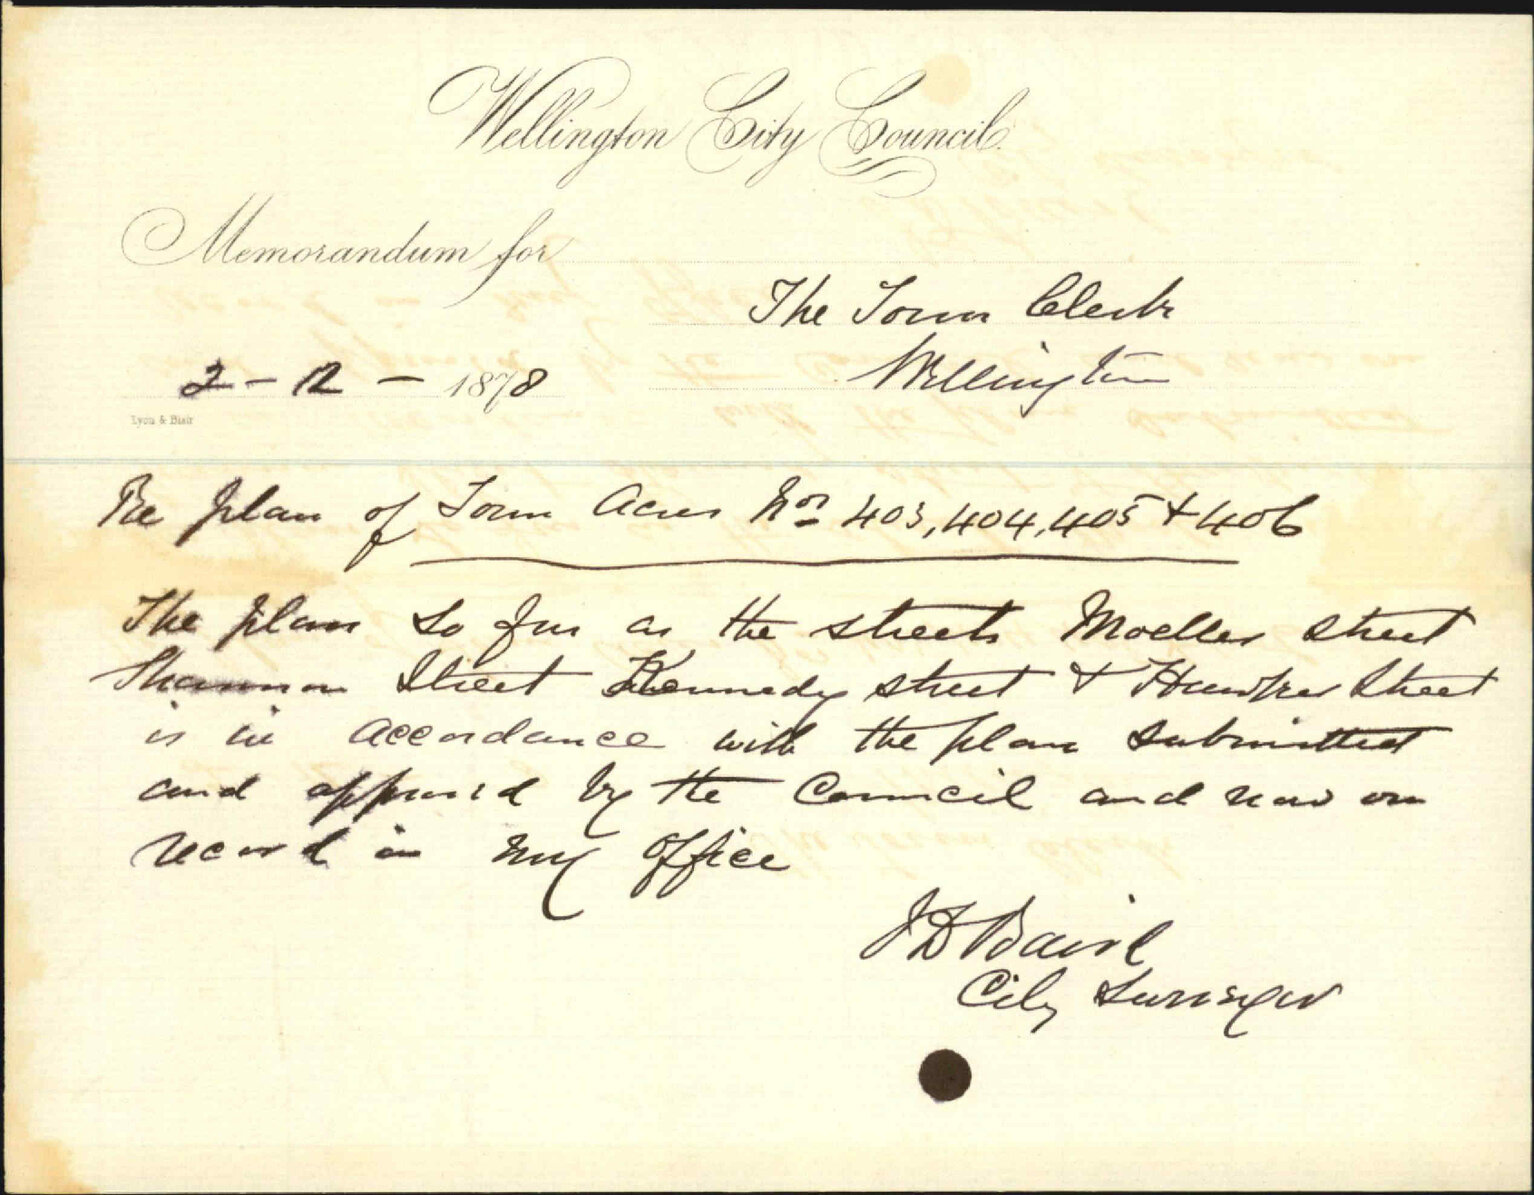 Wellington City Council.
Memorandum for
The Town Clerk
Wellington
2 - 12 - 1878
Lyon & Blair
Re plan of Town Acres Nos 403, 404, 405 & 406
The plan so far as the streets Moeller street
Shannon Street Kennedy street & Hawker Street
is in accordance with the plan submitted
and approved by the Council and now on
record in my office
J D Baird
City Surveyor